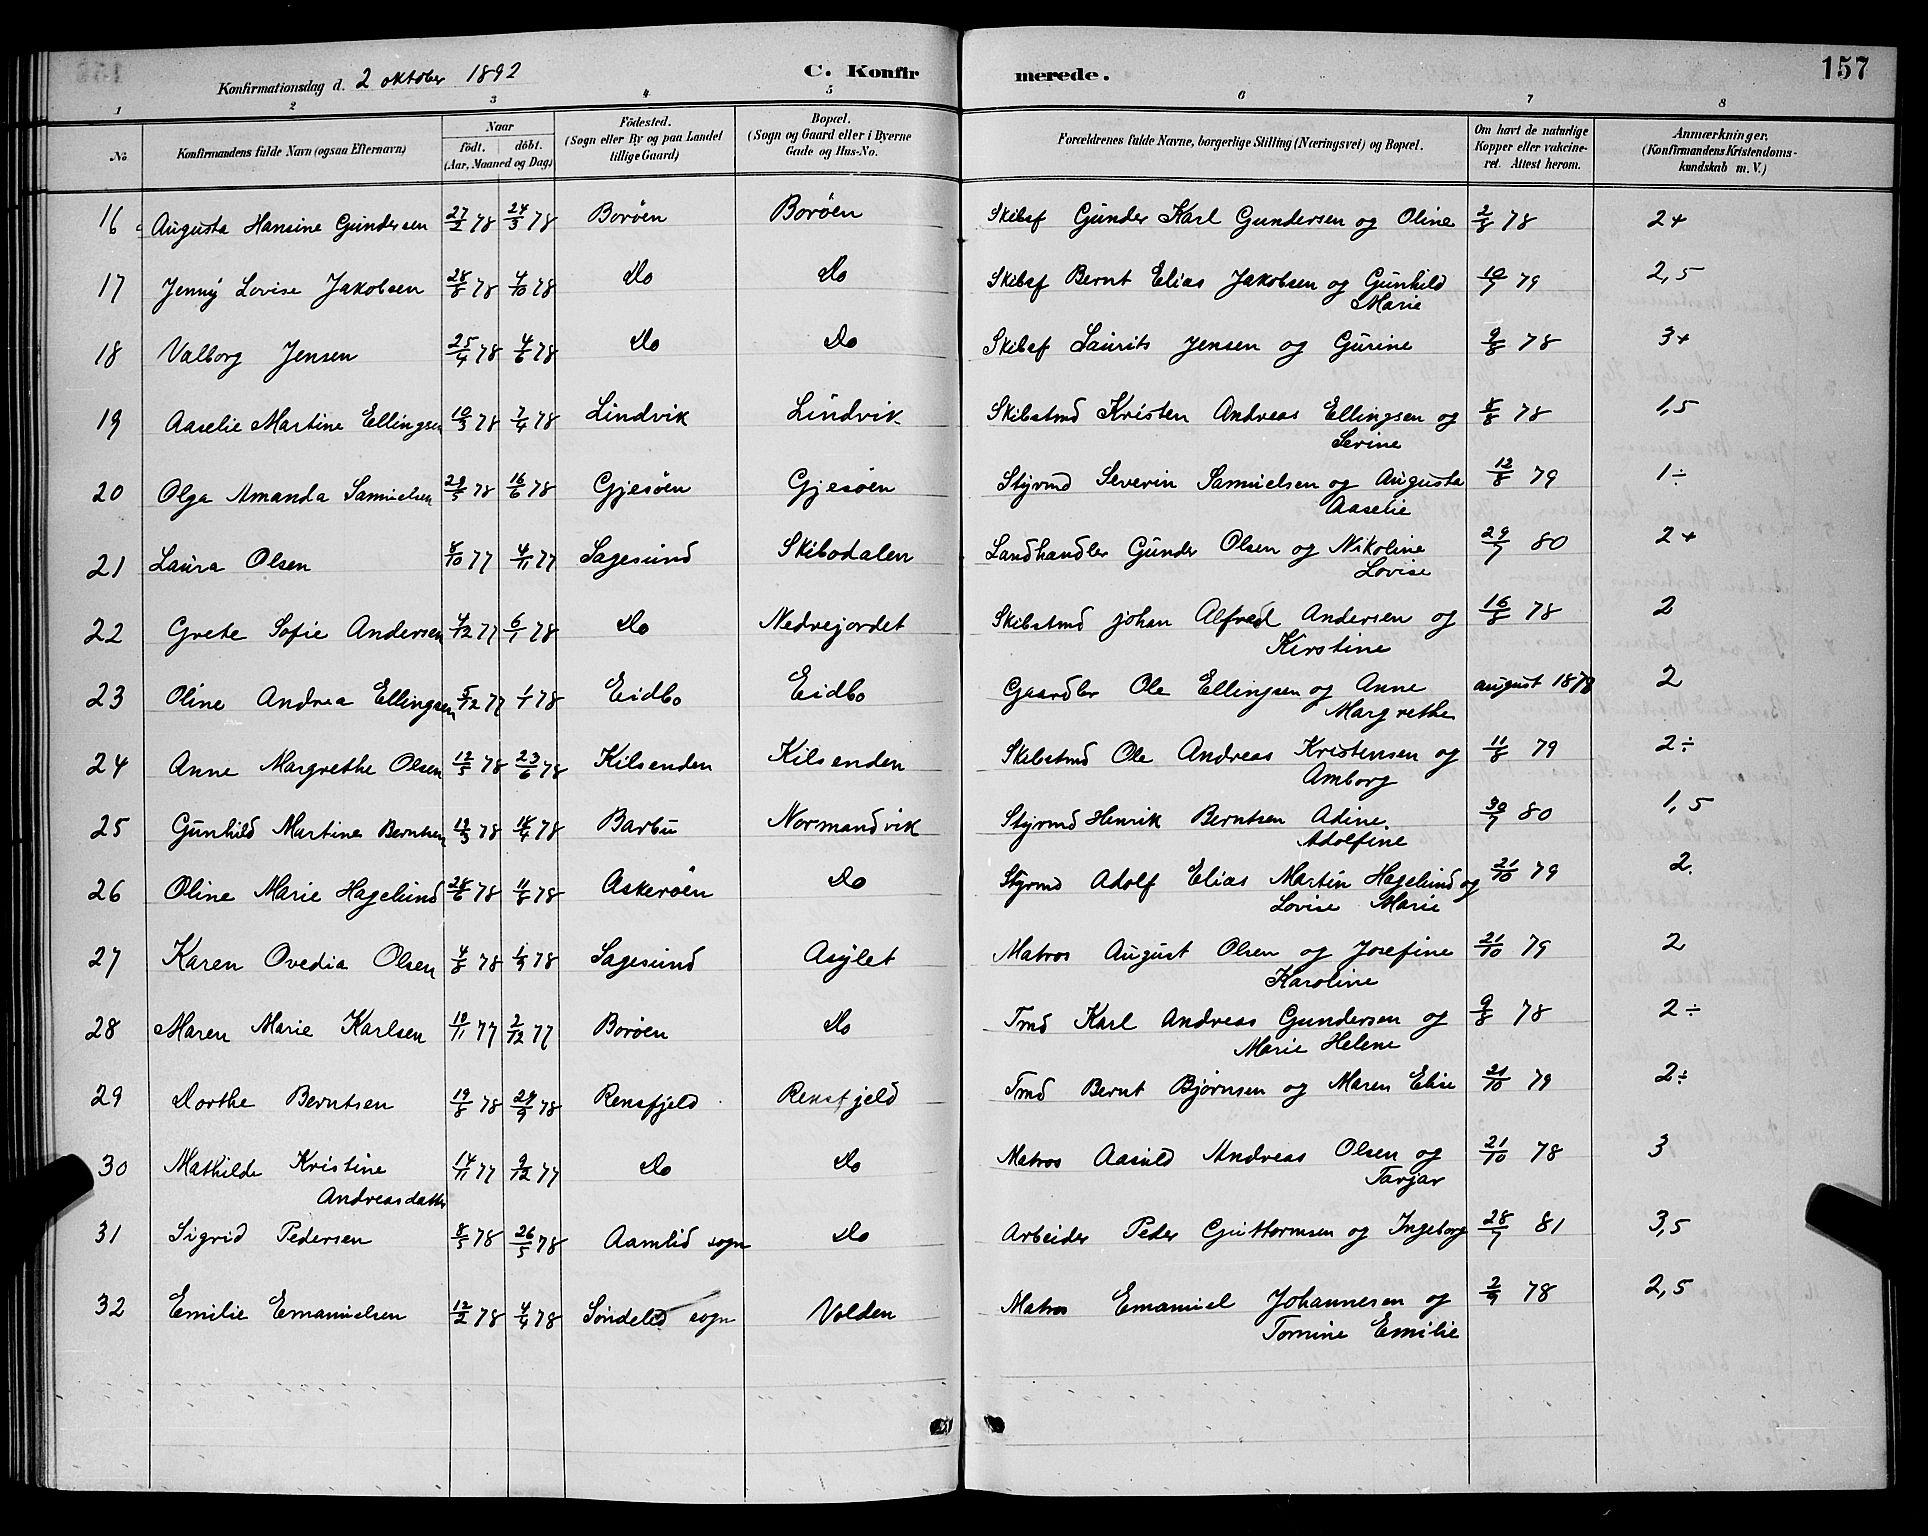 157
Konfirmationsdag d. 2 oktober 1892 C. Konfirmerede.
1 2 3 4 5 6 7 8
No Konfirmandens fulde Navn (ogsaa Efternavn) Naar födt. döbt. (Aar, Maaned og Dag) Födested. (Sogn eller By og paa Landet tillige Gaard) Bopæl. (Sogn og Gaard eller i Byerne Gade og Hus-No. Forældrenes fulde Navne, borgerlige Stilling (Næringsvei) og Bopæl. Om havt de naturlige Kopper eller vakcineret. Attest herom. Anmærkninger. (Konfirmandens Kristendomskundskab m. V.)
16 Augusta Hansine Gundersen 27/2 78 24/3 78 Boröen Boröen Skibsf Gunder Karl Gundersen og Oline 2/8 78 2+
17 Jenny Lovise Jakobsen 28/8 78 4/10 78 Do Do Skibsf Bernt Elias Jakobsen og Gunhild Marie 10/7 79 2,5
18 Valborg Jensen 25/4 78 4/6 78 Do Do Skibsf Laurits Jensen og Gurine 9/8 78 3+
19 Aaselie Martine Ellingsen 10/3 78 7/4 78 Lindvik Lindvik Skibstmd Kristen Andreas Ellingsen og Serine 5/8 78 1,5
20 Olga Amanda Samuelsen 29/5 78 16/6 78 Gjesöen Gjesöen Styrmd Severin Samuelsen og Augusta Aaselie 12/8 79 1÷
21 Laura Olsen 4/10 77 4/11 77 Sagesund Skibsdalen Landhandler Gunder Olsen og Nikoline Lovise 29/7 80 2+
22 Grete Sofie Andersen 4/12 77 6/1 78 Do Nedrejordet Skibstmd Johan Alfred Andersen og Kirstine 16/8 78 2
23 Oline Andrea Ellingsen 5/12 77 1/1 78 Eidbo Eidbo Gaardbr Ole Ellingsen og Anne Margrethe august 1878 2
24 Anne Margrethe Olsen 12/5 78 23/6 78 Kilsenden Kilsenden Skibstmd Ole Andreas Kristensen og Amborg 11/8 79 2÷
25 Gunhild Martine Berntsen 12/3 78 18/4 78 Barbu Normandvik Styrmd Henrik Berntsen Adine Adolfine 30/7 80 1,5
26 Oline Marie Hagelund 28/6 78 11/8 78 Askeröen Do Styrmd Adolf Elias Martin Hagelund og Lovise Marie 21/10 79 2.
27 Karen Ovedia Olsen 4/8 78 1/9 78 Sagesund Asylet Matros August Olsen og Josefine Karoline 21/10 79 2
28 Maren Marie Karlsen 10/11 77 2/12 77 Boröen Do Tmd Karl Andreas Gundersen og Marie Helene 9/8 78 2÷
29 Dorthe Berntsen 19/8 78 29/9 78 Rensfjeld Rensfjeld Tmd Bernt Bjørnsen og Maren Elise 21/10 79 2÷
30 Mathilde Kristine Andreasdatter 14/11 77 9/12 77 Do Do Matros Aasuld Andreas Olsen og Tarjar 21/10 78 3
31 Sigrid Pedersen 8/5 78 26/5 78 Aamlid sogn Do Arbeider Peder Guttormsen og Ingeborg 28/7 81 3,5
32 Emilie Emanuelsen 12/2 78 4/4 78 Söndeled sogn Volden Matros Emanuel Johannesen og Tomine Emilie 2/9 78 2,5